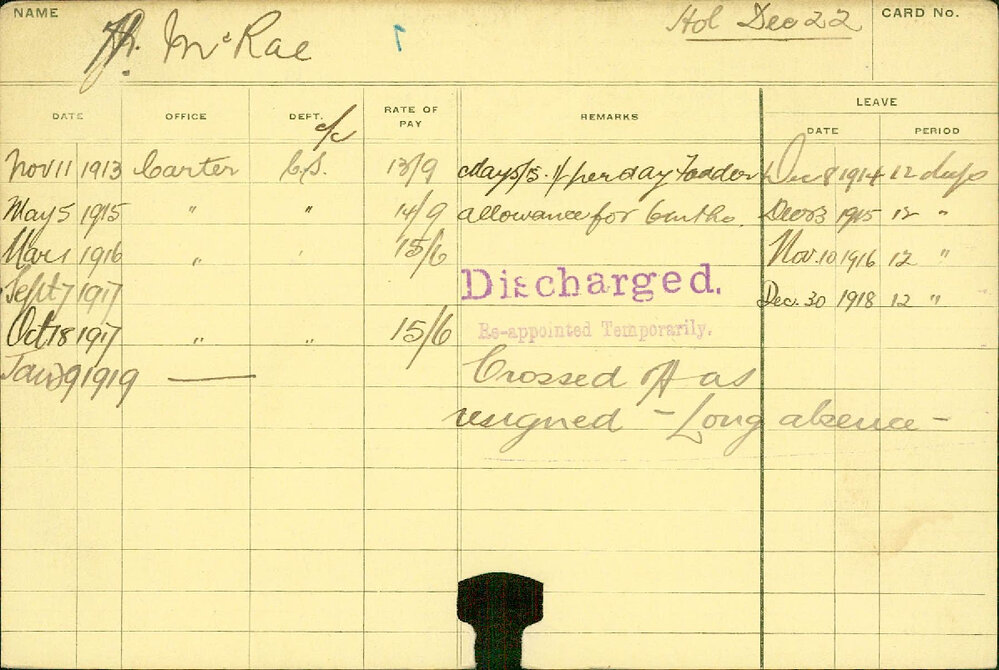 NAME
McRae
Hol Dec 22
CARD No.
DATE OFFICE DEPT. RATE OF PAY REMARKS LEAVE
DATE PERIOD
c/c
Nov 11 1913 Carter C.S. 13/9 May 5/15. 1/ per day Fodder Dec 8 1914 12 days
May 5 1915 " " 14/9 allowance for 6 mths. Dec 23 1915 12 "
Mar 1 1916 " " 15/6 Nov. 10 1916 12 "
Sept 7 1917 Discharged. Dec. 30 1918 12 "
Oct 18 1917 " " 15/6 Re-appointed Temporarily.
Jan 29 1919 — Crossed off as
resigned – Long absence –